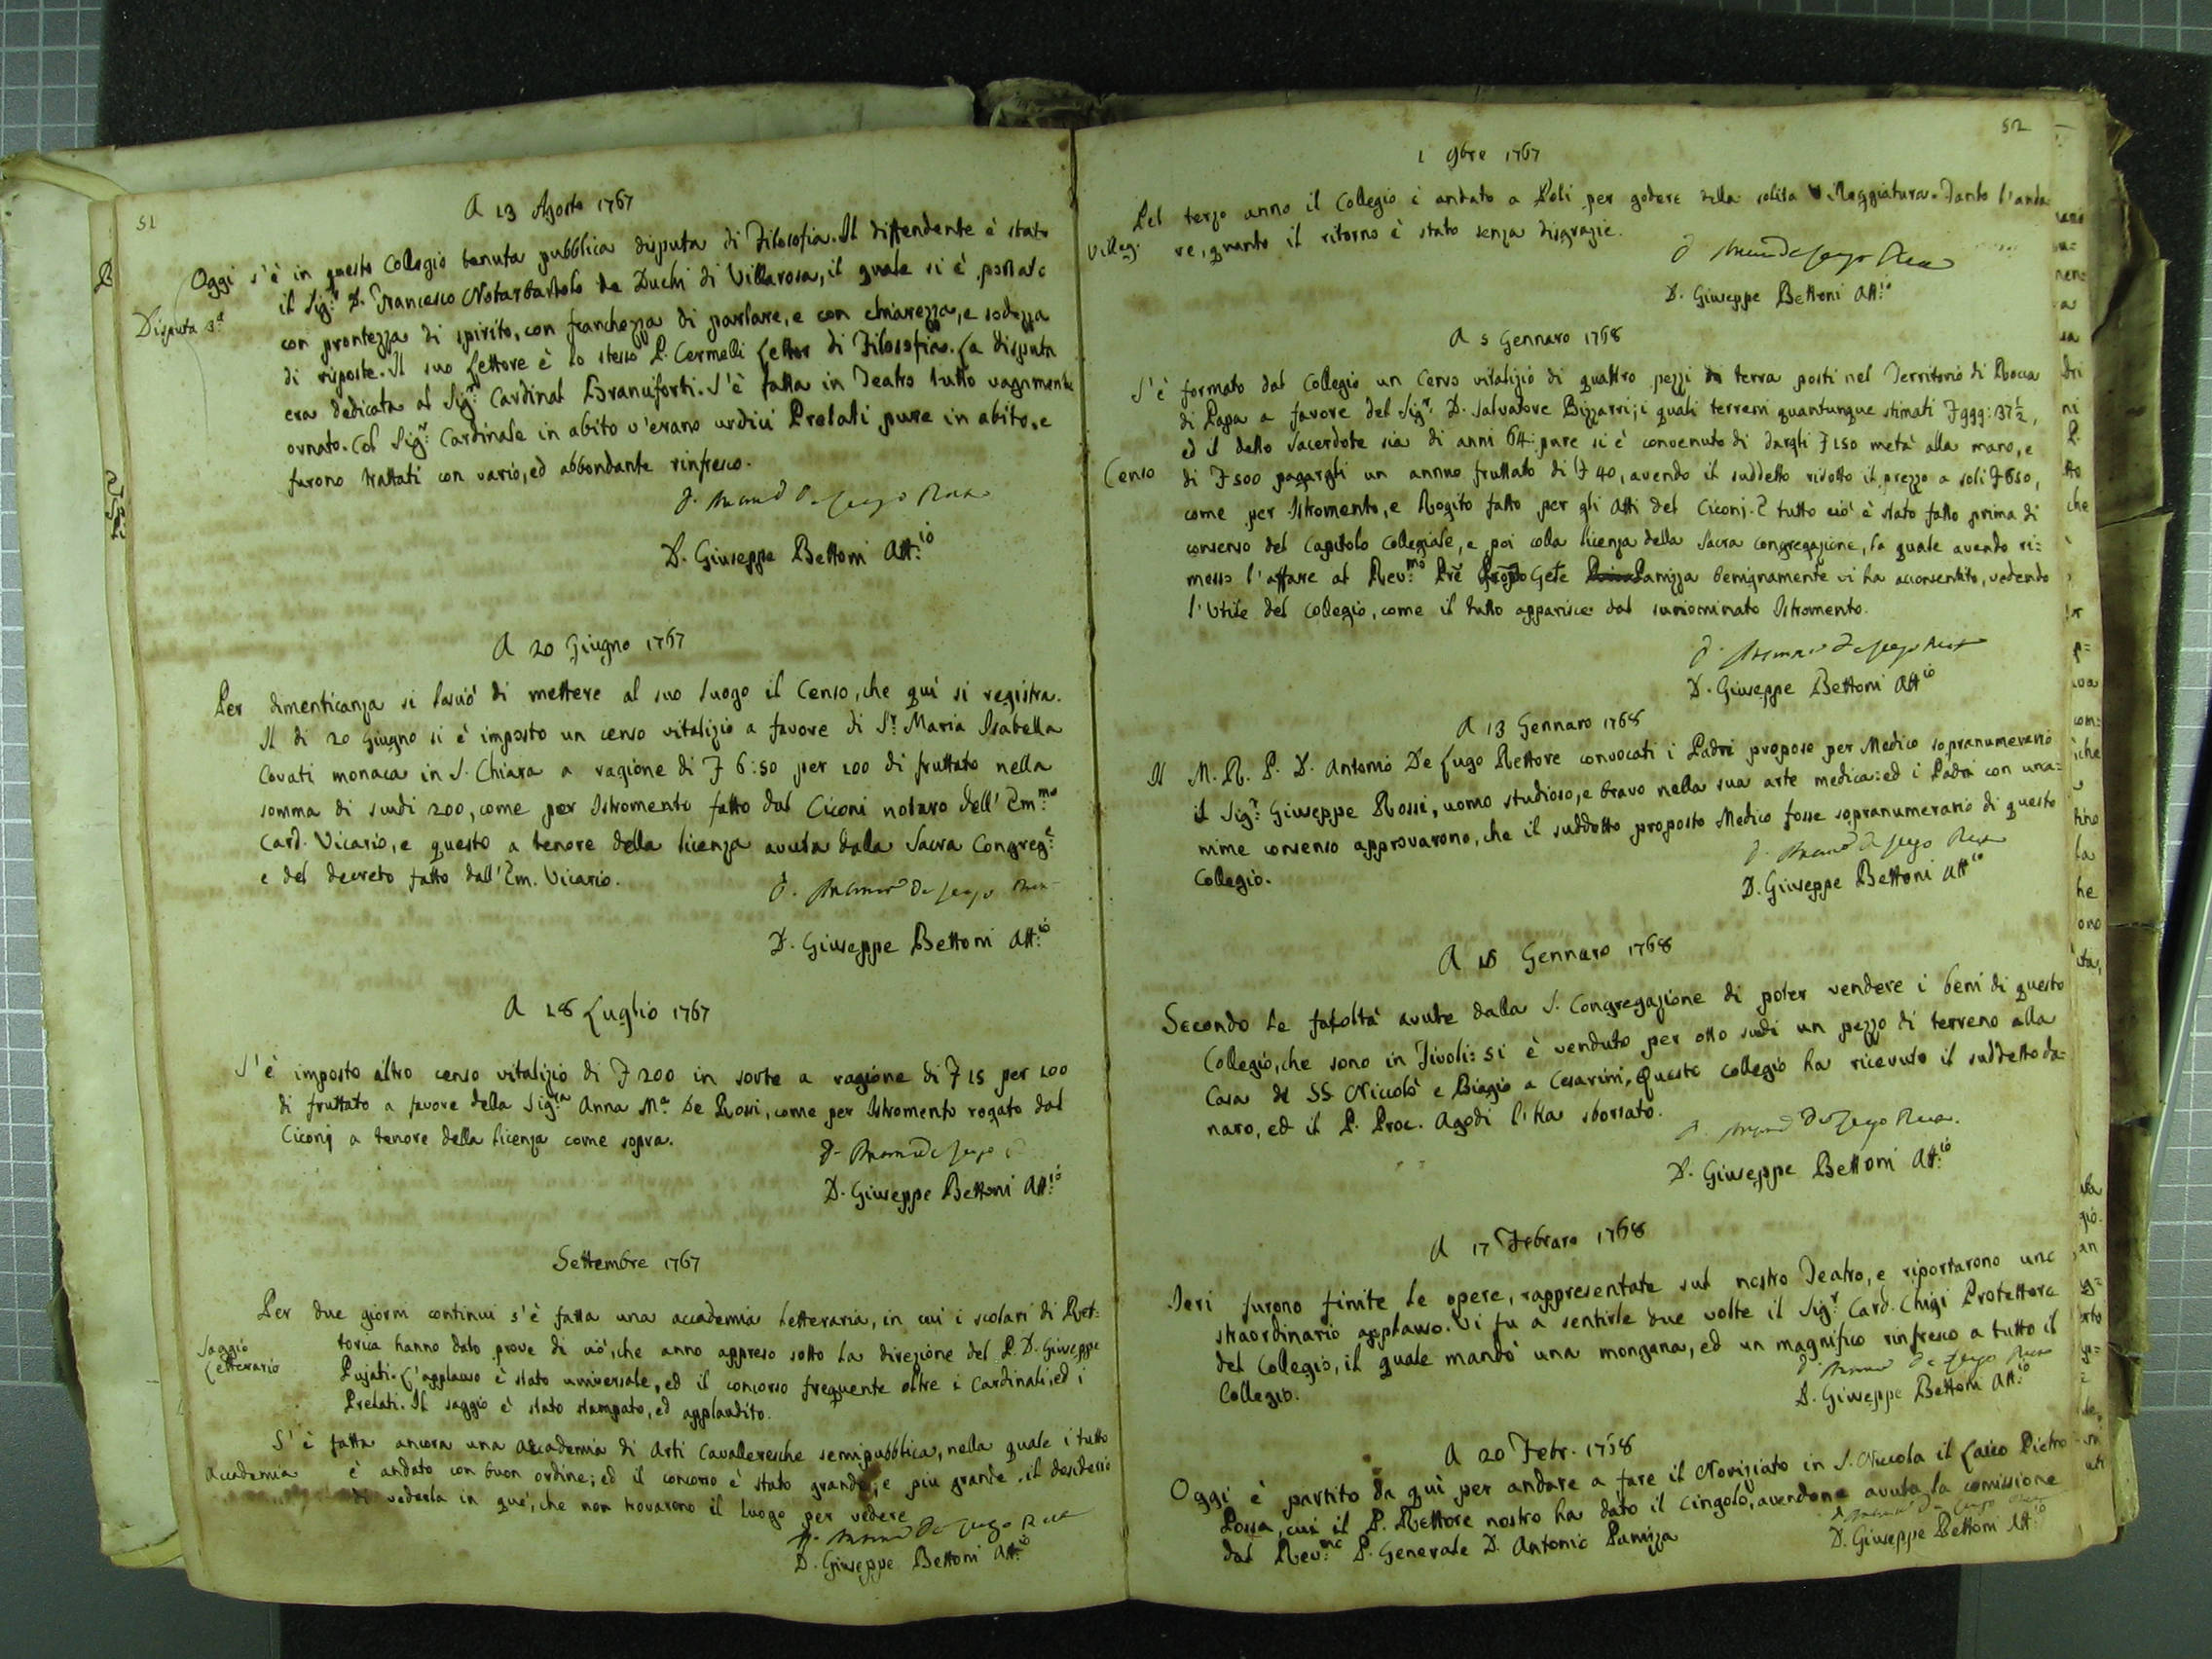 51
A 13 Agosto 1767
Oggi s'è in questo Collegio tenuta pubblica disputa di Filosofia. Il diffendente è stato
Disputa 3ª
il Sig.r D. Francesco Notarbartolo de Duchi di Villarosa, il quale si è portato
con prontezza di spirito, con franchezza di parlare, e con chiarezza, e sodezza
di risposte. Il suo Lettore è lo stesso P. Cermelli Lettor di Filosofia. La disputa
era dedicata al Sig.r Cardinal Branciforti. S'è fatta in Teatro tutto vagamente
ornato. Col Sig.r Cardinale in abito v'erano undici Prelati pure in abito, e
furono trattati con vario, ed abbondante rinfresco.
D. De Lugo
D. Giuseppe Bettoni Att.io
A 20 Giugno 1767
Per dimenticanza si lasciò di mettere al suo luogo il Censo, che quì si registra.
Il di 20 Giugno si è imposto un censo vitalizio a favore di S.r Maria Isabella
Covati monaca in S. Chiara a ragione di 6:50 per 100 di fruttato nella
somma di scudi 200, come per Istromento fatto dal Ciconi notaro dell' Em.mo
Card. Vicario, e questo a tenore della licenza avuta dalla Sacra Congreg.e
e del decreto fatto dall'Em. Vicario.
D. De Lugo
D. Giuseppe Bettoni Att.io
A 28 Luglio 1767
S'è imposto altro censo vitalizio di 200 in sorte a ragione di 15 per 100
di fruttato a favore della Sig.ra Anna M.a De Rossi, come per Istromento rogato dal
Ciconj a tenore della licenza come sopra.
D. De Lugo
D. Giuseppe Bettoni Att.io
Settembre 1767
Per due giorni continui s'è fatta una accademia letteraria, in cui i scolari di Ret-
Saggio
Letterario
torica hanno dato prove di ciò, che anno appreso sotto la direzione del P. D. Giuseppe
Pujati. L'applauso è stato universale, ed il concorso frequente oltre i Cardinali, ed i
Prelati. Il saggio è stato stampato, ed applaudito.
S'è fatta ancora una Accademia di Arti Cavalleresche semipubblica, nella quale i tutto
Accademia
è andato con buon ordine; ed il concorso è stato grande, e più grande il desiderio
di vederla in que', che non trovarono il luogo per vedere
D. De Lugo
D. Giuseppe Bettoni Att.io
52
1 9bre 1767
Pel terzo anno il Collegio è andato a Poli per godere della solita Villeggiatura. Tanto l'anda
Villeg.
re, quanto il ritorno è stato senza disgrazie.
D. De Lugo
D. Giuseppe Bettoni Att.io
A 5 Gennaro 1768
S'è formato dal Collegio un Censo vitalizio di quattro pezzi di terra posti nel Territorio di Rocca
di Papa a favore del Sig.r D. Salvatore Bizzarri; i quali terreni quantunque stimati 999:37½,
ed il detto Sacerdote sia di anni 64: pure si è convenuto di dargli 150 metà alla mano, e
Censo
di 500 pagargli un annuo fruttato di 40, avendo il suddetto ridotto il prezzo a soli 650,
come per Istromento, e Rogito fatto per gli Atti del Ciconj. E tutto ciò è stato fatto prima di
consenso del Capitolo Collegiale, e poi colla licenza della Sacra Congregazione, la quale avendo ri=
messo l'affare al Rev.mo Prē Gēte Pamizza benignamente vi ha acconsentito, vedendo
l'Utile del Collegio, come il tutto apparisce dal sunnominato Istromento.
D. De Lugo
D. Giuseppe Bettoni Att.io
A 13 Gennaro 1768
Il M. R. P. D. Antonio De Lugo Rettore convocati i Padri propose per Medico sopranumerario
il Sig.r Giuseppe Rossi, uomo studioso, e bravo nella sua arte medica: ed i Padri con una=
nime consenso approvarono, che il suddetto proposto Medico fosse sopranumerario di questo
Collegio.
D. De Lugo
D. Giuseppe Bettoni Att.io
A 18 Gennaro 1768
Secondo le facoltà avute dalla S. Congregazione di poter vendere i beni di questo
Collegio, che sono in Tivoli: si è venduto per otto scudi un pezzo di terreno alla
Casa di SS. Niccolò e Biagio a Cesarini. Questo collegio ha ricevuto il suddetto da=
naro, ed il P. Proc. Agodi l'ha sborsato.
D. De Lugo
D. Giuseppe Bettoni Att.io
A 17 Febraro 1768
Ieri furono finite le opere, rappresentate sul nostro Teatro, e riportarono uno
straordinario applauso. Vi fu a sentirle due volte il Sig.r Card. Chigi Protettore
del Collegio, il quale mandò una mongana, ed un magnifico rinfresco a tutto il
Collegio.
D. De Lugo
D. Giuseppe Bettoni Att.io
A 20 Febr. 1768
Oggi è partito da quì per andare a fare il Noviziato in S. Niccola il Laico Pietro
Possa, cui il P. Rettore nostro ha dato il cingolo, avendone avuta la comissione
dal Rev.mo P. Generale D. Antonio Pamizza
D. De Lugo
D. Giuseppe Bettoni Att.io